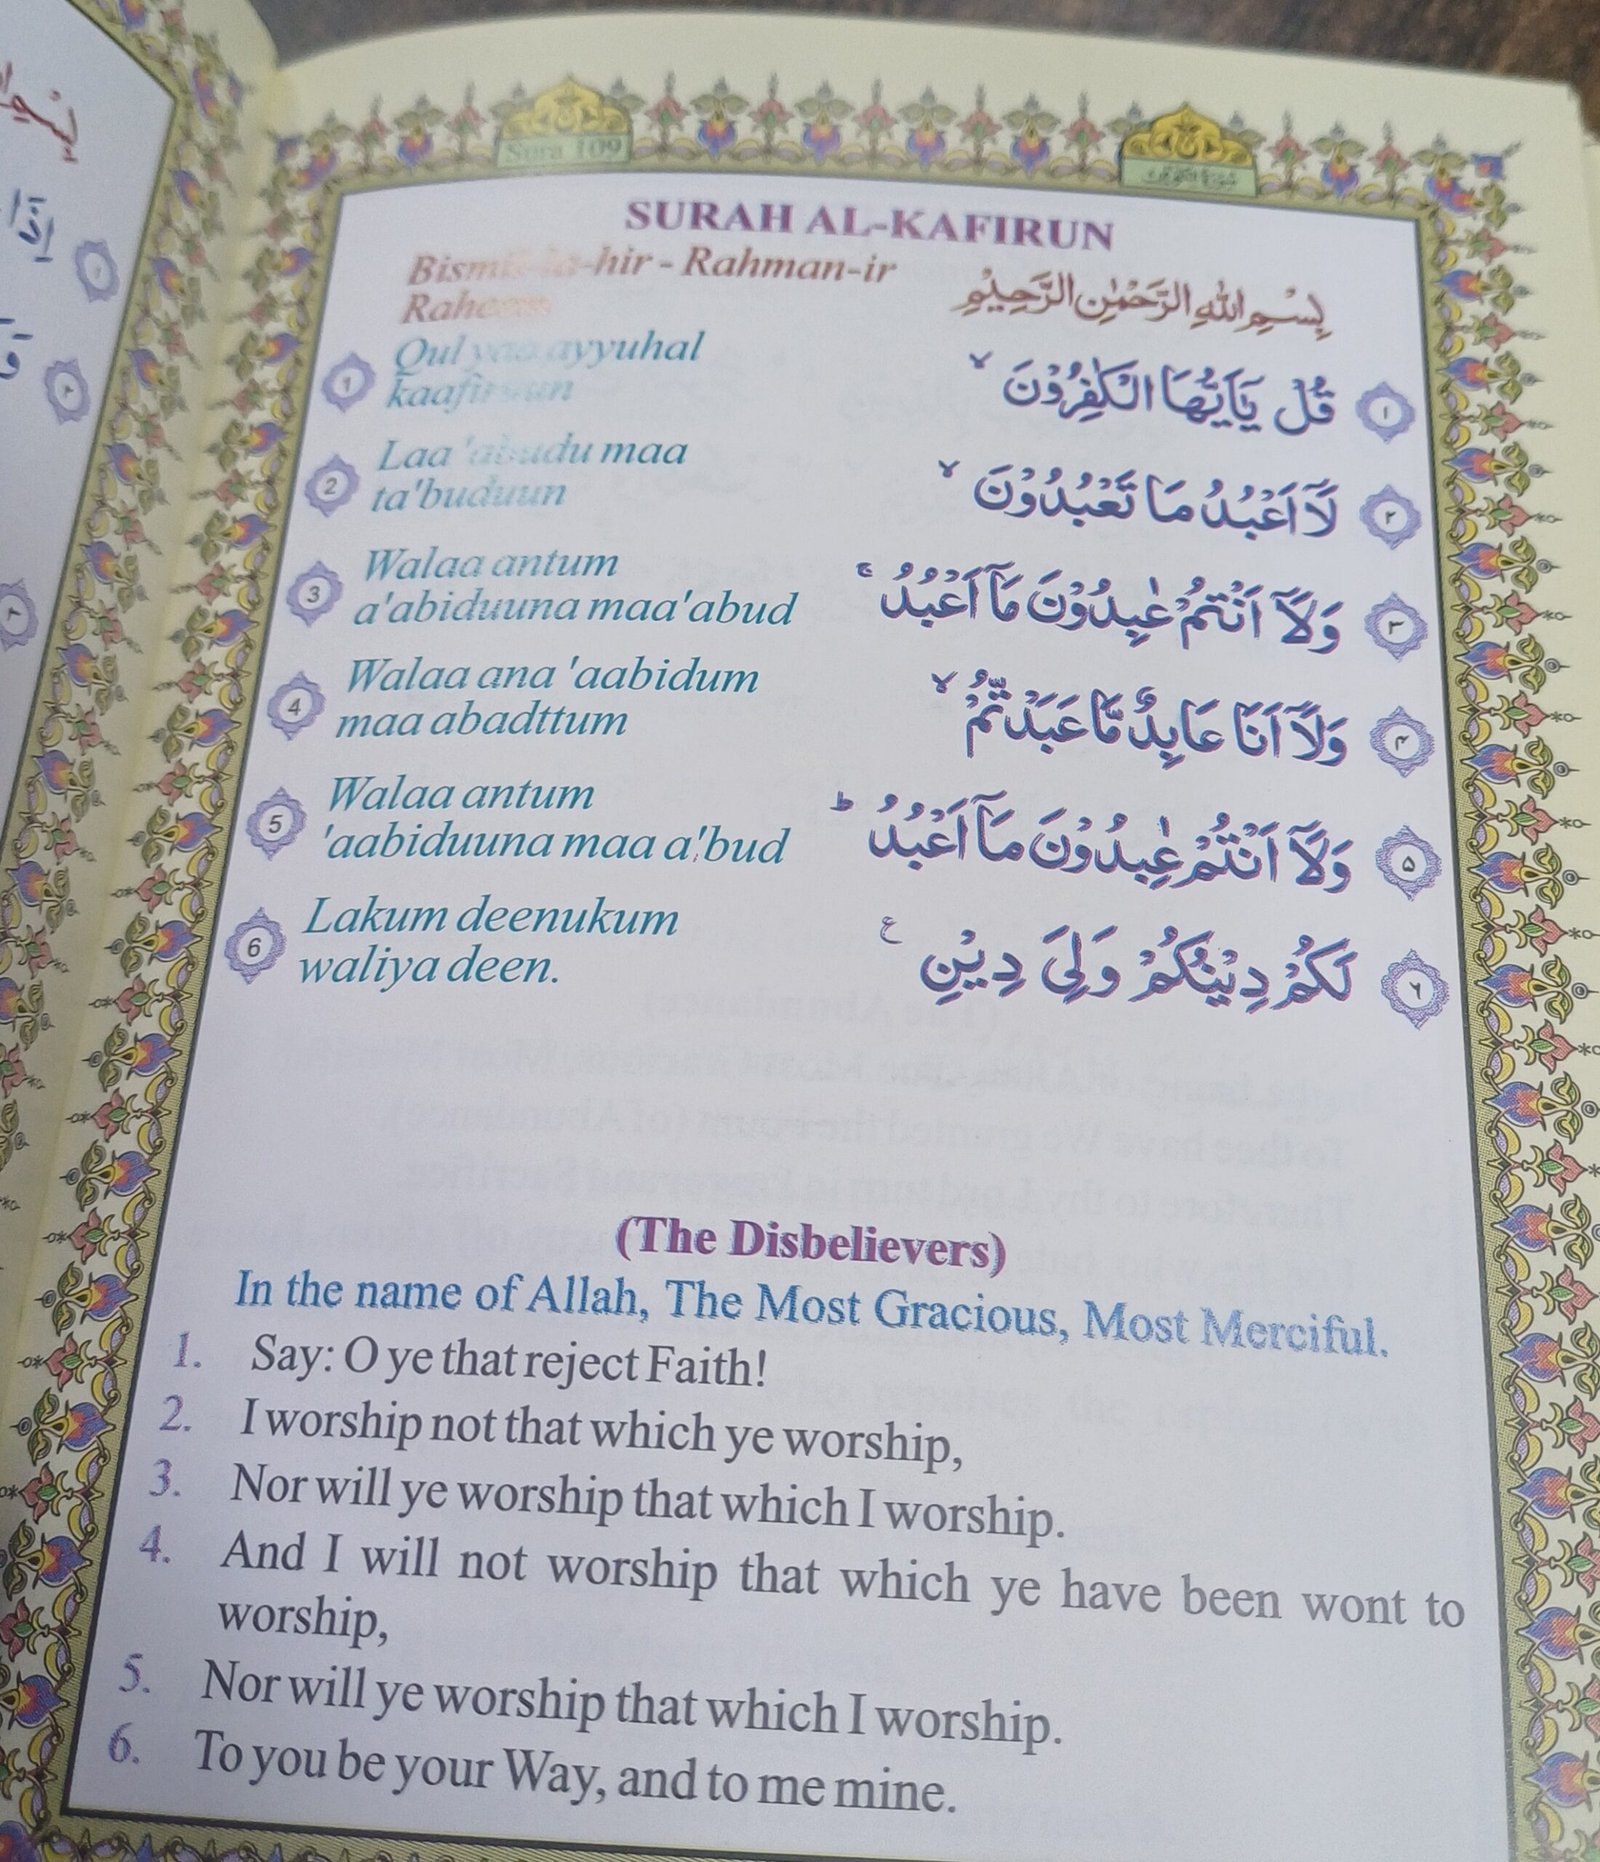 Sura 109
SURAH AL-KAFIRUN
Bismil-la-hir - Rahman-ir
Raheem
بِسْمِ اللّٰهِ الرَّحْمٰنِ الرَّحِيْمِ
1 Qul yaa ayyuhal
kaafiruun
قُلْ يٰۤاَيُّهَا الْكٰفِرُوْنَ ۙ ١
2 Laa 'abudu maa
ta'buduun
لَاۤ اَعْبُدُ مَا تَعْبُدُوْنَ ۙ ٢
3 Walaa antum
a'abiduuna maa'abud
وَلَاۤ اَنْتُمْ عٰبِدُوْنَ مَاۤ اَعْبُدُ ۚ ٣
4 Walaa ana 'aabidum
maa abadttum
وَلَاۤ اَنَا عَابِدٌ مَّا عَبَدْتُّمْ ۙ ۴
5 Walaa antum
'aabiduuna maa a'bud
وَلَاۤ اَنْتُمْ عٰبِدُوْنَ مَاۤ اَعْبُدُ ؕ ۵
6 Lakum deenukum
waliya deen.
لَكُمْ دِيْنُكُمْ وَلِيَ دِيْنِ ع ۶
(The Disbelievers)
In the name of Allah, The Most Gracious, Most Merciful.
1. Say: O ye that reject Faith!
2. I worship not that which ye worship,
3. Nor will ye worship that which I worship.
4. And I will not worship that which ye have been wont to
worship,
5. Nor will ye worship that which I worship.
6. To you be your Way, and to me mine.